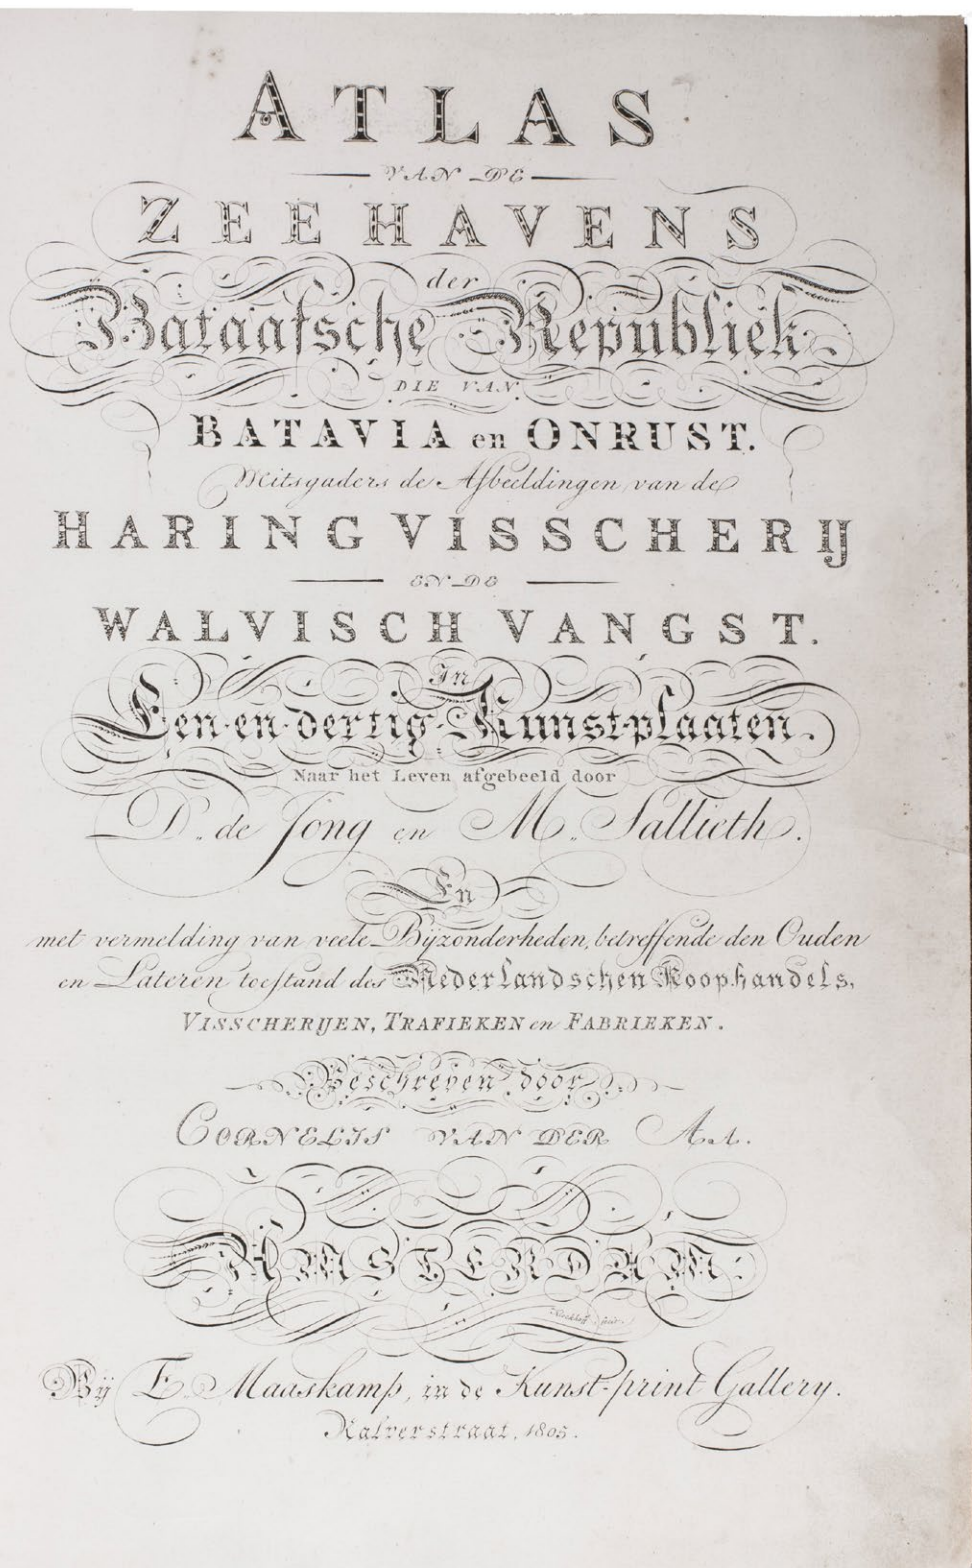 ATLAS
VAN DE
ZEEHAVENS
der
Bataafsche Republiek
DIE VAN
BATAVIA en ONRUST.
Mitsgaders de Afbeeldingen van de
HARING VISSCHERIJ
EN DE
WALVISCH VANGST.
In
Een-en-dertig Kunst-plaaten.
Naar het Leven afgebeeld door
D. de Jong en M. Sallieth.
En
met vermelding van veele Bijzonderheden, betreffende den Ouden
en Lateren toestand des Nederlandschen Koophandels,
VISSCHERIJEN, TRAFIEKEN en FABRIEKEN.
Beschreven door
CORNELIS VAN DER AA.
AMSTERDAM.
Bij E. Maaskamp, in de Kunst-print Gallery.
Kalverstraat, 1805.